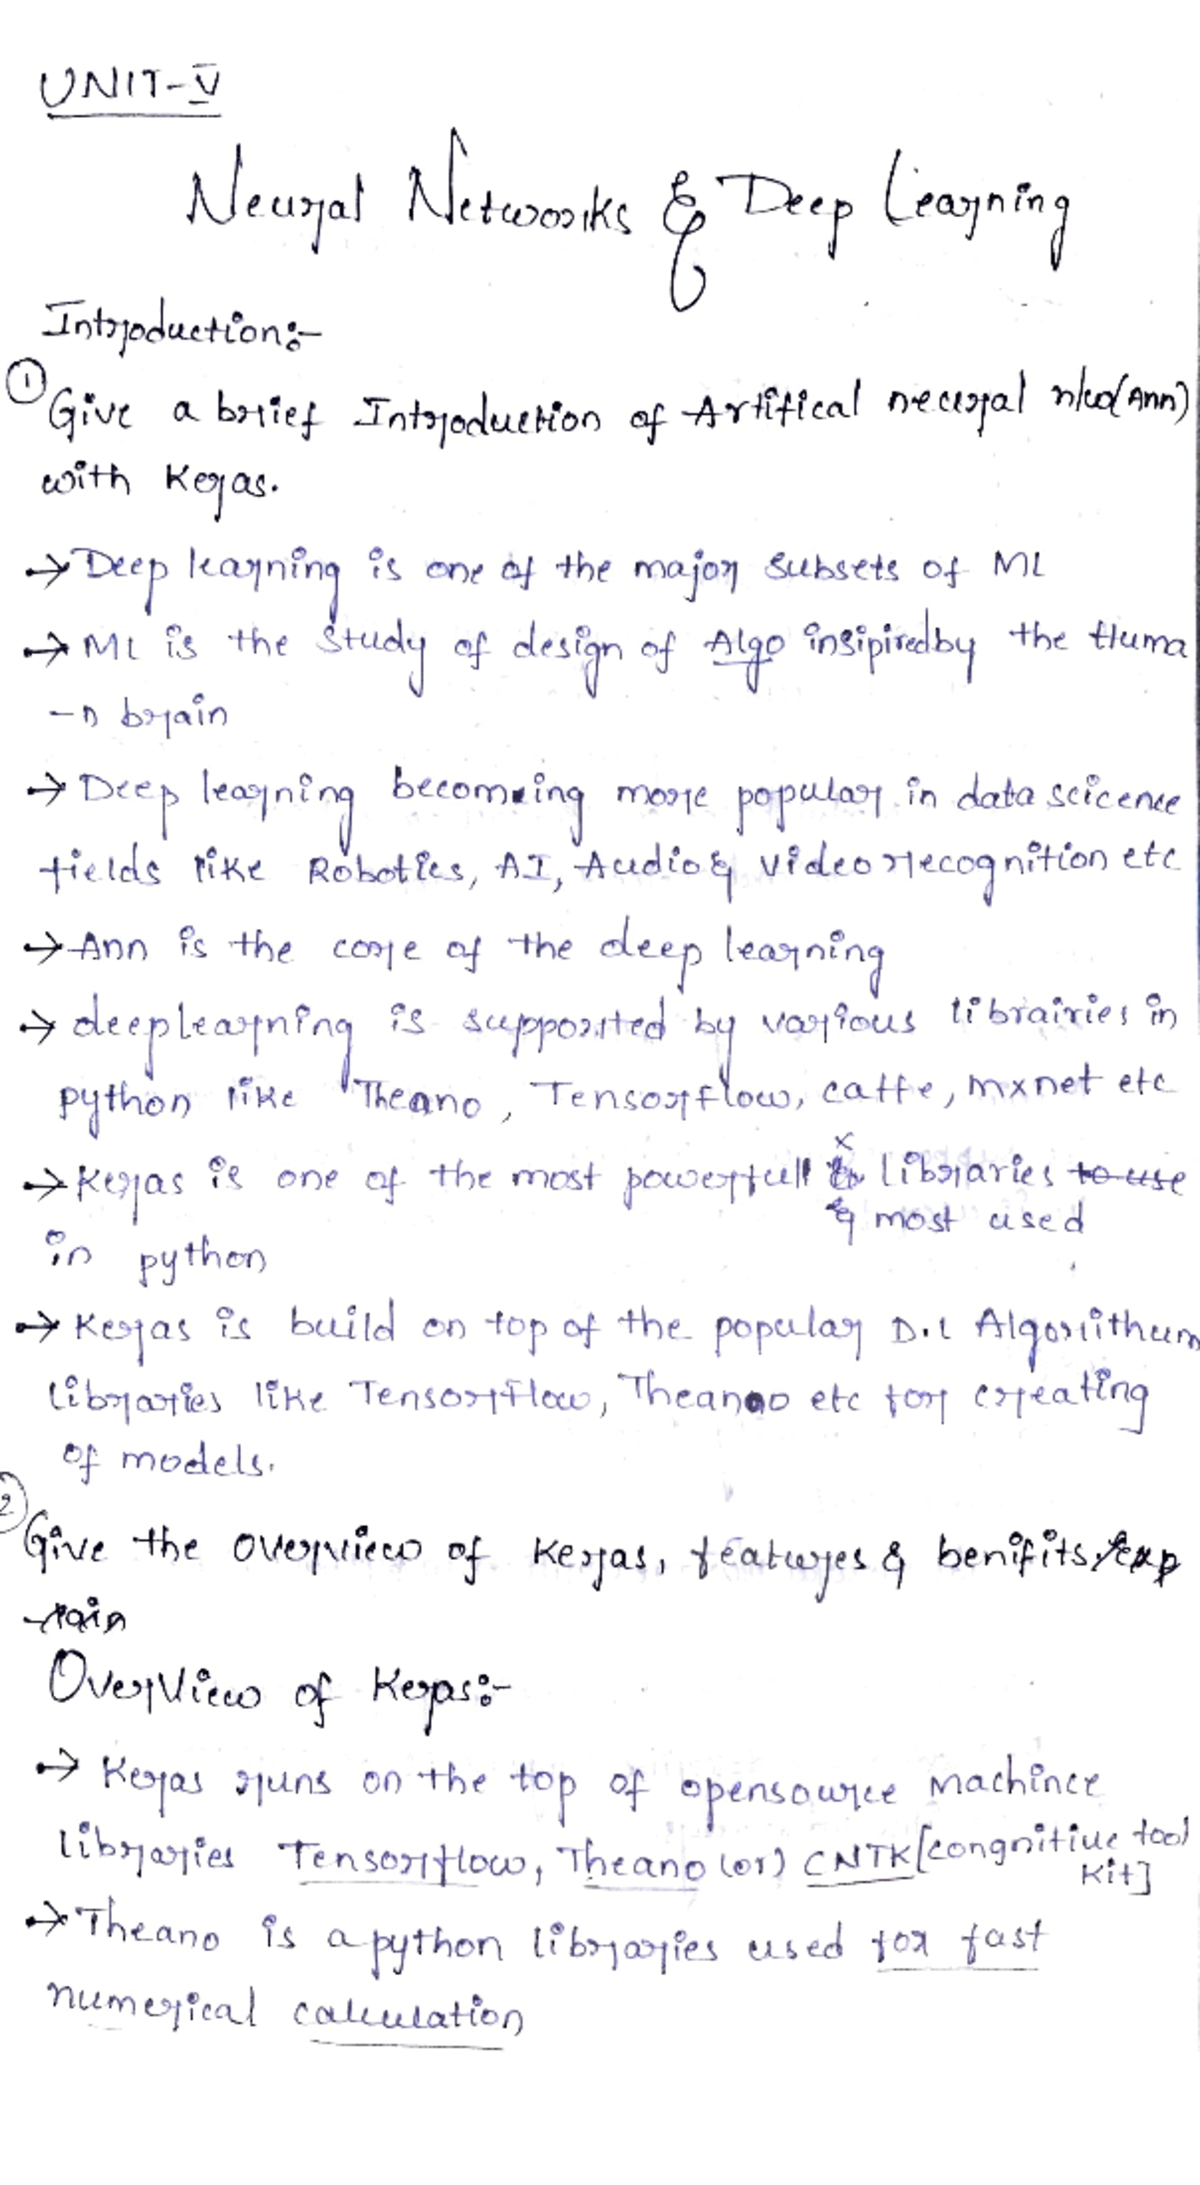 UNIT-V
Neural Networks & Deep Learning
Introduction:-
① Give a brief Introduction of Artifical neural n/w(Ann)
with Keras.
→ Deep learning is one of the major subsets of ML
→ ML is the study of design of Algo insipired by the Huma
-n brain
→ Deep learning becoming more popular in data scicence
fields like Robotics, AI, Audio & video recognition etc
→ Ann is the core of the deep learning
→ deep learning is supported by various librairies in
python like Theano, Tensorflow, caffe, mxnet etc
→ Keras is one of the most powerfull libraries to use
& most used
in python
→ Keras is build on top of the popular D.L Algorithum
libraries like Tensorflow, Theano etc for creating
of models.
② Give the overview of Keras, features & benifits exp
-lain
Overview of Keras:-
→ Keras runs on the top of opensource machince
libraries Tensorflow, Theano (or) CNTK [congnitive tool
Kit]
→ Theano is a python libraries used for fast
numerical calculation